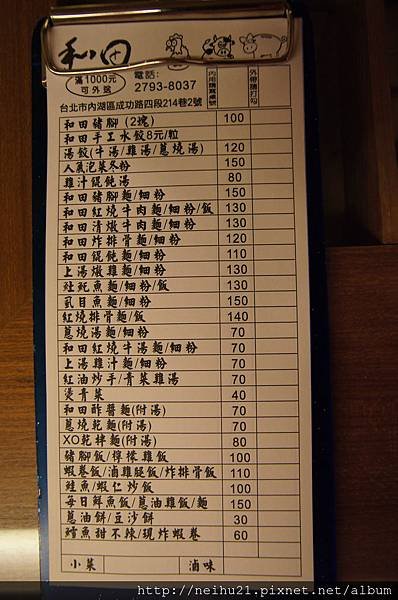 和田
滿1000元
可外送
電話:
2793-8037
內用請寫桌號
外帶請打勾
台北市內湖區成功路四段214巷2號
和田豬腳 (2塊) 100
和田手工水餃8元/粒
湯餃(牛湯/雞湯/蔥燒湯) 120
人氣泡菜冬粉 150
雞汁餛飩湯 80
和田豬腳麵/細粉 150
和田紅燒牛肉麵/細粉/飯 130
和田清燉牛肉麵/細粉 130
和田炸排骨麵/細粉 120
和田餛飩麵/細粉 110
上湯燉雞麵/細粉 130
魠魠魚麵/細粉/飯 130
虱目魚麵/細粉 150
紅燒排骨麵/飯 140
蔥燒湯麵/細粉 70
和田紅燒牛湯麵/細粉 70
上湯雞汁麵/細粉 70
紅油炒手/青菜雞湯 70
燙青菜 40
和田酢醬麵(附湯) 70
蔥燒乾麵(附湯) 70
XO乾拌麵(附湯) 80
豬腳飯/檸檬雞飯 100
蝦卷飯/滷雞腿飯/炸排骨飯 110
鮭魚/蝦仁炒飯 100
每日鮮魚飯/蔥油雞飯/麵 150
蔥油餅/豆沙餅 30
鱈魚甜不辣/現炸蝦卷 60
小菜 滷味
http://neihu21.pixnet.net/album